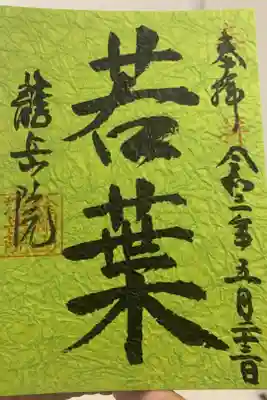 奉拝 令和二年五月二十三日
若葉
龍岳院